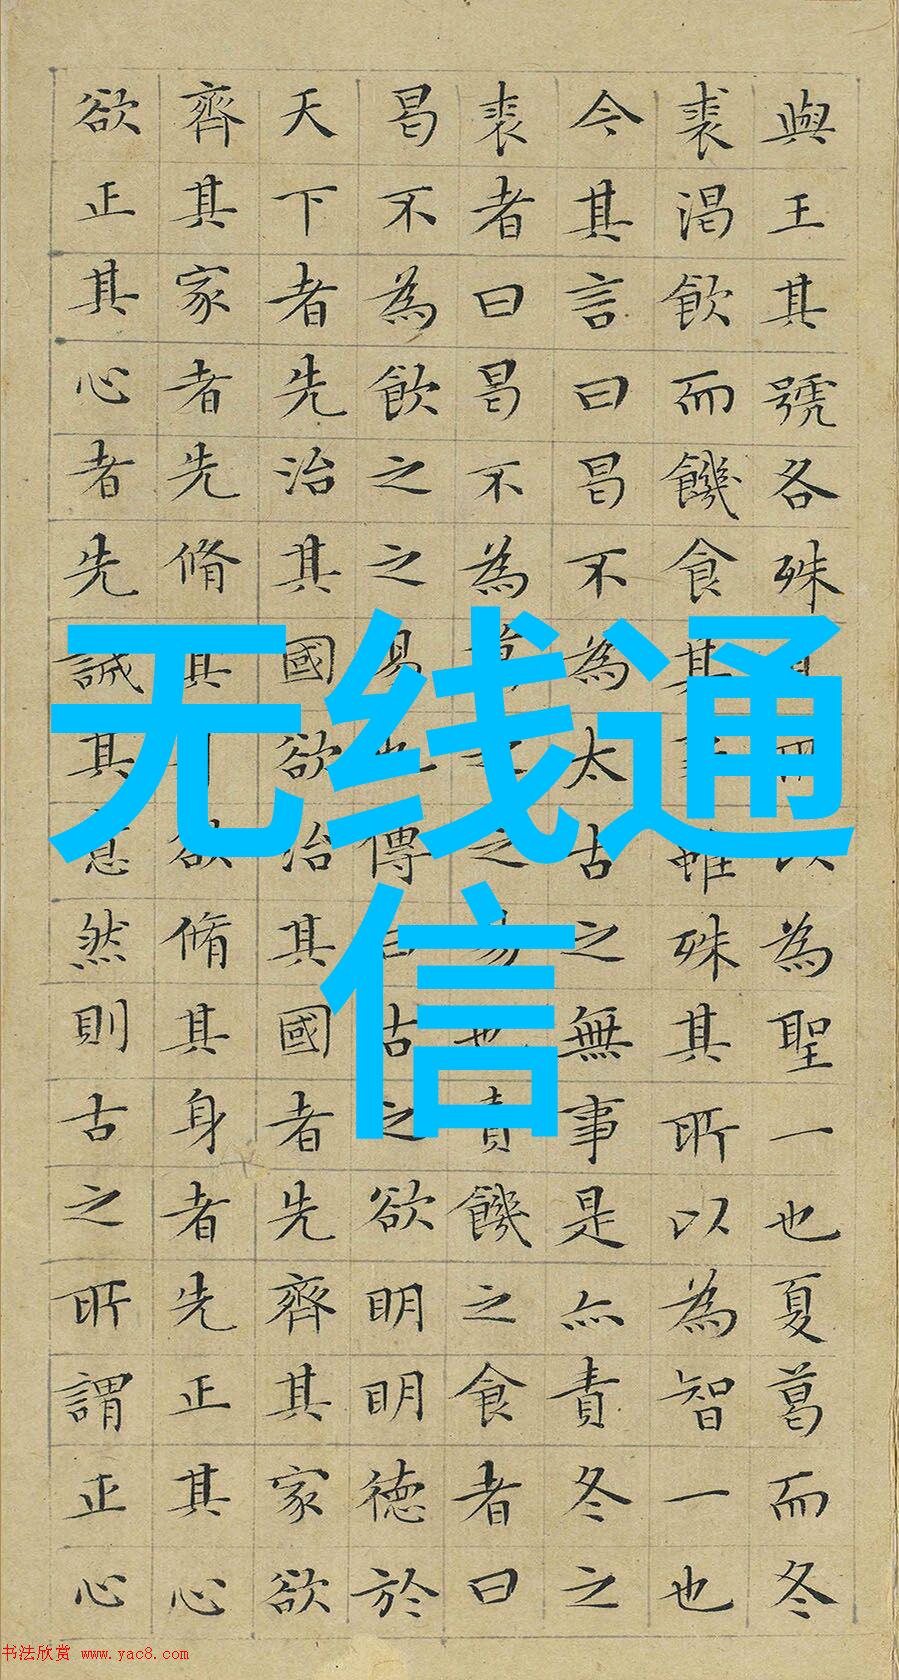 无线通
信
與王其號各殊為聖一也夏葛而冬
裘渴飲而饑食其雖殊其所以為智一也
今其言曰曷不為太古之無事是亦責冬之
裘者曰曷不為之之易也責饑之食者曰
曷不為飲之之易也傳曰古之欲明明德於
天下者先治其國欲治其國者先齊其家欲
齊其家者先脩其欲脩其身者先正其心
欲正其心者先誠其意然則古之所謂正心
书法欣赏 www.yac8.com